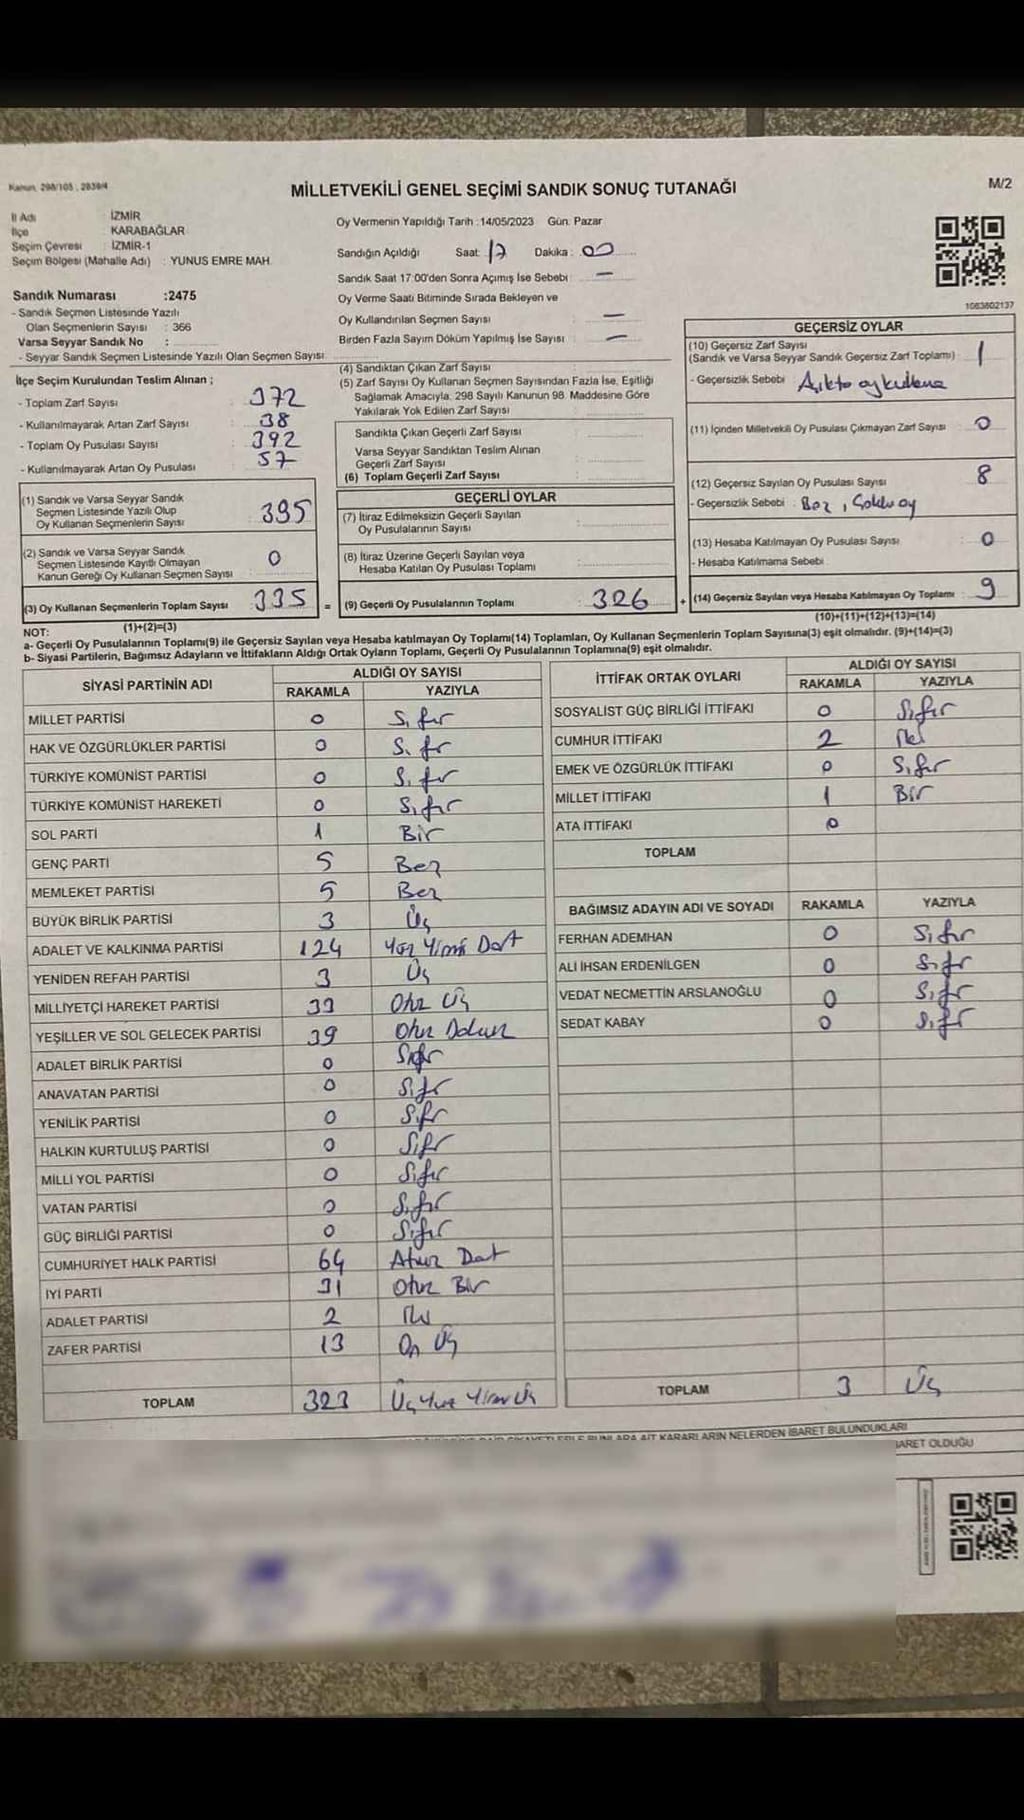 Kanun, 298/105 , 2839/4
MİLLETVEKİLİ GENEL SEÇİMİ SANDIK SONUÇ TUTANAĞI
M/2
İl Adı İZMİR
İlçe : KARABAĞLAR
Seçim Çevresi : İZMİR-1
Seçim Bölgesi (Mahalle Adı) : YUNUS EMRE MAH.
Oy Vermenin Yapıldığı Tarih :14/05/2023 Gün: Pazar
Sandığın Açıldığı Saat: 17 Dakika : 00
Sandık Saat 17:00'den Sonra Açımış İse Sebebi : —
Oy Verme Saati Bitiminde Sırada Bekleyen ve
Oy Kullandırılan Seçmen Sayısı : —
Birden Fazla Sayım Döküm Yapılmış İse Sayısı : —
Sandık Numarası :2475
- Sandık Seçmen Listesinde Yazılı
Olan Seçmenlerin Sayısı : 366
Varsa Seyyar Sandık No :
- Seyyar Sandık Seçmen Listesinde Yazılı Olan Seçmen Sayısı
İlçe Seçim Kurulundan Teslim Alınan ;
- Toplam Zarf Sayısı : 372
- Kullanılmayarak Artan Zarf Sayısı : 38
- Toplam Oy Pusulası Sayısı : 392
- Kullanılmayarak Artan Oy Pusulası : 57
(1) Sandık ve Varsa Seyyar Sandık
Seçmen Listesinde Yazılı Olup
Oy Kullanan Seçmenlerin Sayısı : 335
(2) Sandık ve Varsa Seyyar Sandık
Seçmen Listesinde Kayıtlı Olmayan
Kanun Gereği Oy Kullanan Seçmen Sayısı : 0
(3) Oy Kullanan Seçmenlerin Toplam Sayısı : 335 =
(1)+(2)=(3)
(4) Sandıktan Çıkan Zarf Sayısı :
(5) Zarf Sayısı Oy Kullanan Seçmen Sayısından Fazla İse, Eşitliği
Sağlamak Amacıyla, 298 Sayılı Kanunun 98. Maddesine Göre
Yakılarak Yok Edilen Zarf Sayısı :
Sandıkta Çıkan Geçerli Zarf Sayısı :
Varsa Seyyar Sandıktan Teslim Alınan
Geçerli Zarf Sayısı :
(6) Toplam Geçerli Zarf Sayısı :
GEÇERLİ OYLAR
(7) İtiraz Edilmeksizin Geçerli Sayılan
Oy Pusulalarının Sayısı :
(8) İtiraz Üzerine Geçerli Sayılan veya
Hesaba Katılan Oy Pusulası Toplamı :
(9) Geçerli Oy Pusulalarının Toplamı : 326 +
1083802137
GEÇERSİZ OYLAR
(10) Geçersiz Zarf Sayısı
(Sandık ve Varsa Seyyar Sandık Geçersiz Zarf Toplamı) : 1
- Geçersizlik Sebebi : Açıkta oy kullanma
(11) İçinden Milletvekili Oy Pusulası Çıkmayan Zarf Sayısı : 0
(12) Geçersiz Sayılan Oy Pusulası Sayısı : 8
- Geçersizlik Sebebi :
(13) Hesaba Katılmayan Oy Pusulası Sayısı : 0
- Hesaba Katılmama Sebebi
(14) Geçersiz Sayılan veya Hesaba Katılmayan Oy Toplamı : 9
(10)+(11)+(12)+(13)=(14)
NOT:
a- Geçerli Oy Pusulalarının Toplamı(9) ile Geçersiz Sayılan veya Hesaba katılmayan Oy Toplamı(14) Toplamları, Oy Kullanan Seçmenlerin Toplam Sayısına(3) eşit olmalıdır. (9)+(14)=(3)
b- Siyasi Partilerin, Bağımsız Adayların ve İttifakların Aldığı Ortak Oyların Toplamı, Geçerli Oy Pusulalarının Toplamına(9) eşit olmalıdır.
SİYASİ PARTİNİN ADI ALDIĞI OY SAYISI
RAKAMLA YAZIYLA
MİLLET PARTİSİ 0 Sıfır
HAK VE ÖZGÜRLÜKLER PARTİSİ 0 Sıfır
TÜRKİYE KOMÜNİST PARTİSİ 0 Sıfır
TÜRKİYE KOMÜNİST HAREKETİ 0 Sıfır
SOL PARTİ 1 Bir
GENÇ PARTİ 5 Beş
MEMLEKET PARTİSİ 5 Beş
BÜYÜK BİRLİK PARTİSİ 3 Üç
ADALET VE KALKINMA PARTİSİ 124 Yüz Yirmi Dört
YENİDEN REFAH PARTİSİ 3 Üç
MİLLİYETÇİ HAREKET PARTİSİ 33 Otuz Üç
YEŞİLLER VE SOL GELECEK PARTİSİ 39 Otuz Dokuz
ADALET BİRLİK PARTİSİ 0 Sıfır
ANAVATAN PARTİSİ 0 Sıfır
YENİLİK PARTİSİ 0 Sıfır
HALKIN KURTULUŞ PARTİSİ 0 Sıfır
MİLLİ YOL PARTİSİ 0 Sıfır
VATAN PARTİSİ 0 Sıfır
GÜÇ BİRLİĞİ PARTİSİ 0 Sıfır
CUMHURİYET HALK PARTİSİ 64 Atmış Dört
İYİ PARTİ 31 Otuz Bir
ADALET PARTİSİ 2 İki
ZAFER PARTİSİ 13 On Üç
TOPLAM 323 Üç Yüz Yirmi Üç
İTTİFAK ORTAK OYLARI ALDIĞI OY SAYISI
RAKAMLA YAZIYLA
SOSYALİST GÜÇ BİRLİĞİ İTTİFAKI 0 Sıfır
CUMHUR İTTİFAKI 2 İki
EMEK VE ÖZGÜRLÜK İTTİFAKI 0 Sıfır
MİLLET İTTİFAKI 1 Bir
ATA İTTİFAKI 0
TOPLAM
BAĞIMSIZ ADAYIN ADI VE SOYADI RAKAMLA YAZIYLA
FERHAN ADEMHAN 0 Sıfır
ALİ İHSAN ERDENİLGEN 0 Sıfır
VEDAT NECMETTİN ARSLANOĞLU 0 Sıfır
SEDAT KABAY 0 Sıfır
TOPLAM 3 Üç
KARARLARIN NELERDEN İBARET BULUNDUKLARI
İBARET OLDUĞU